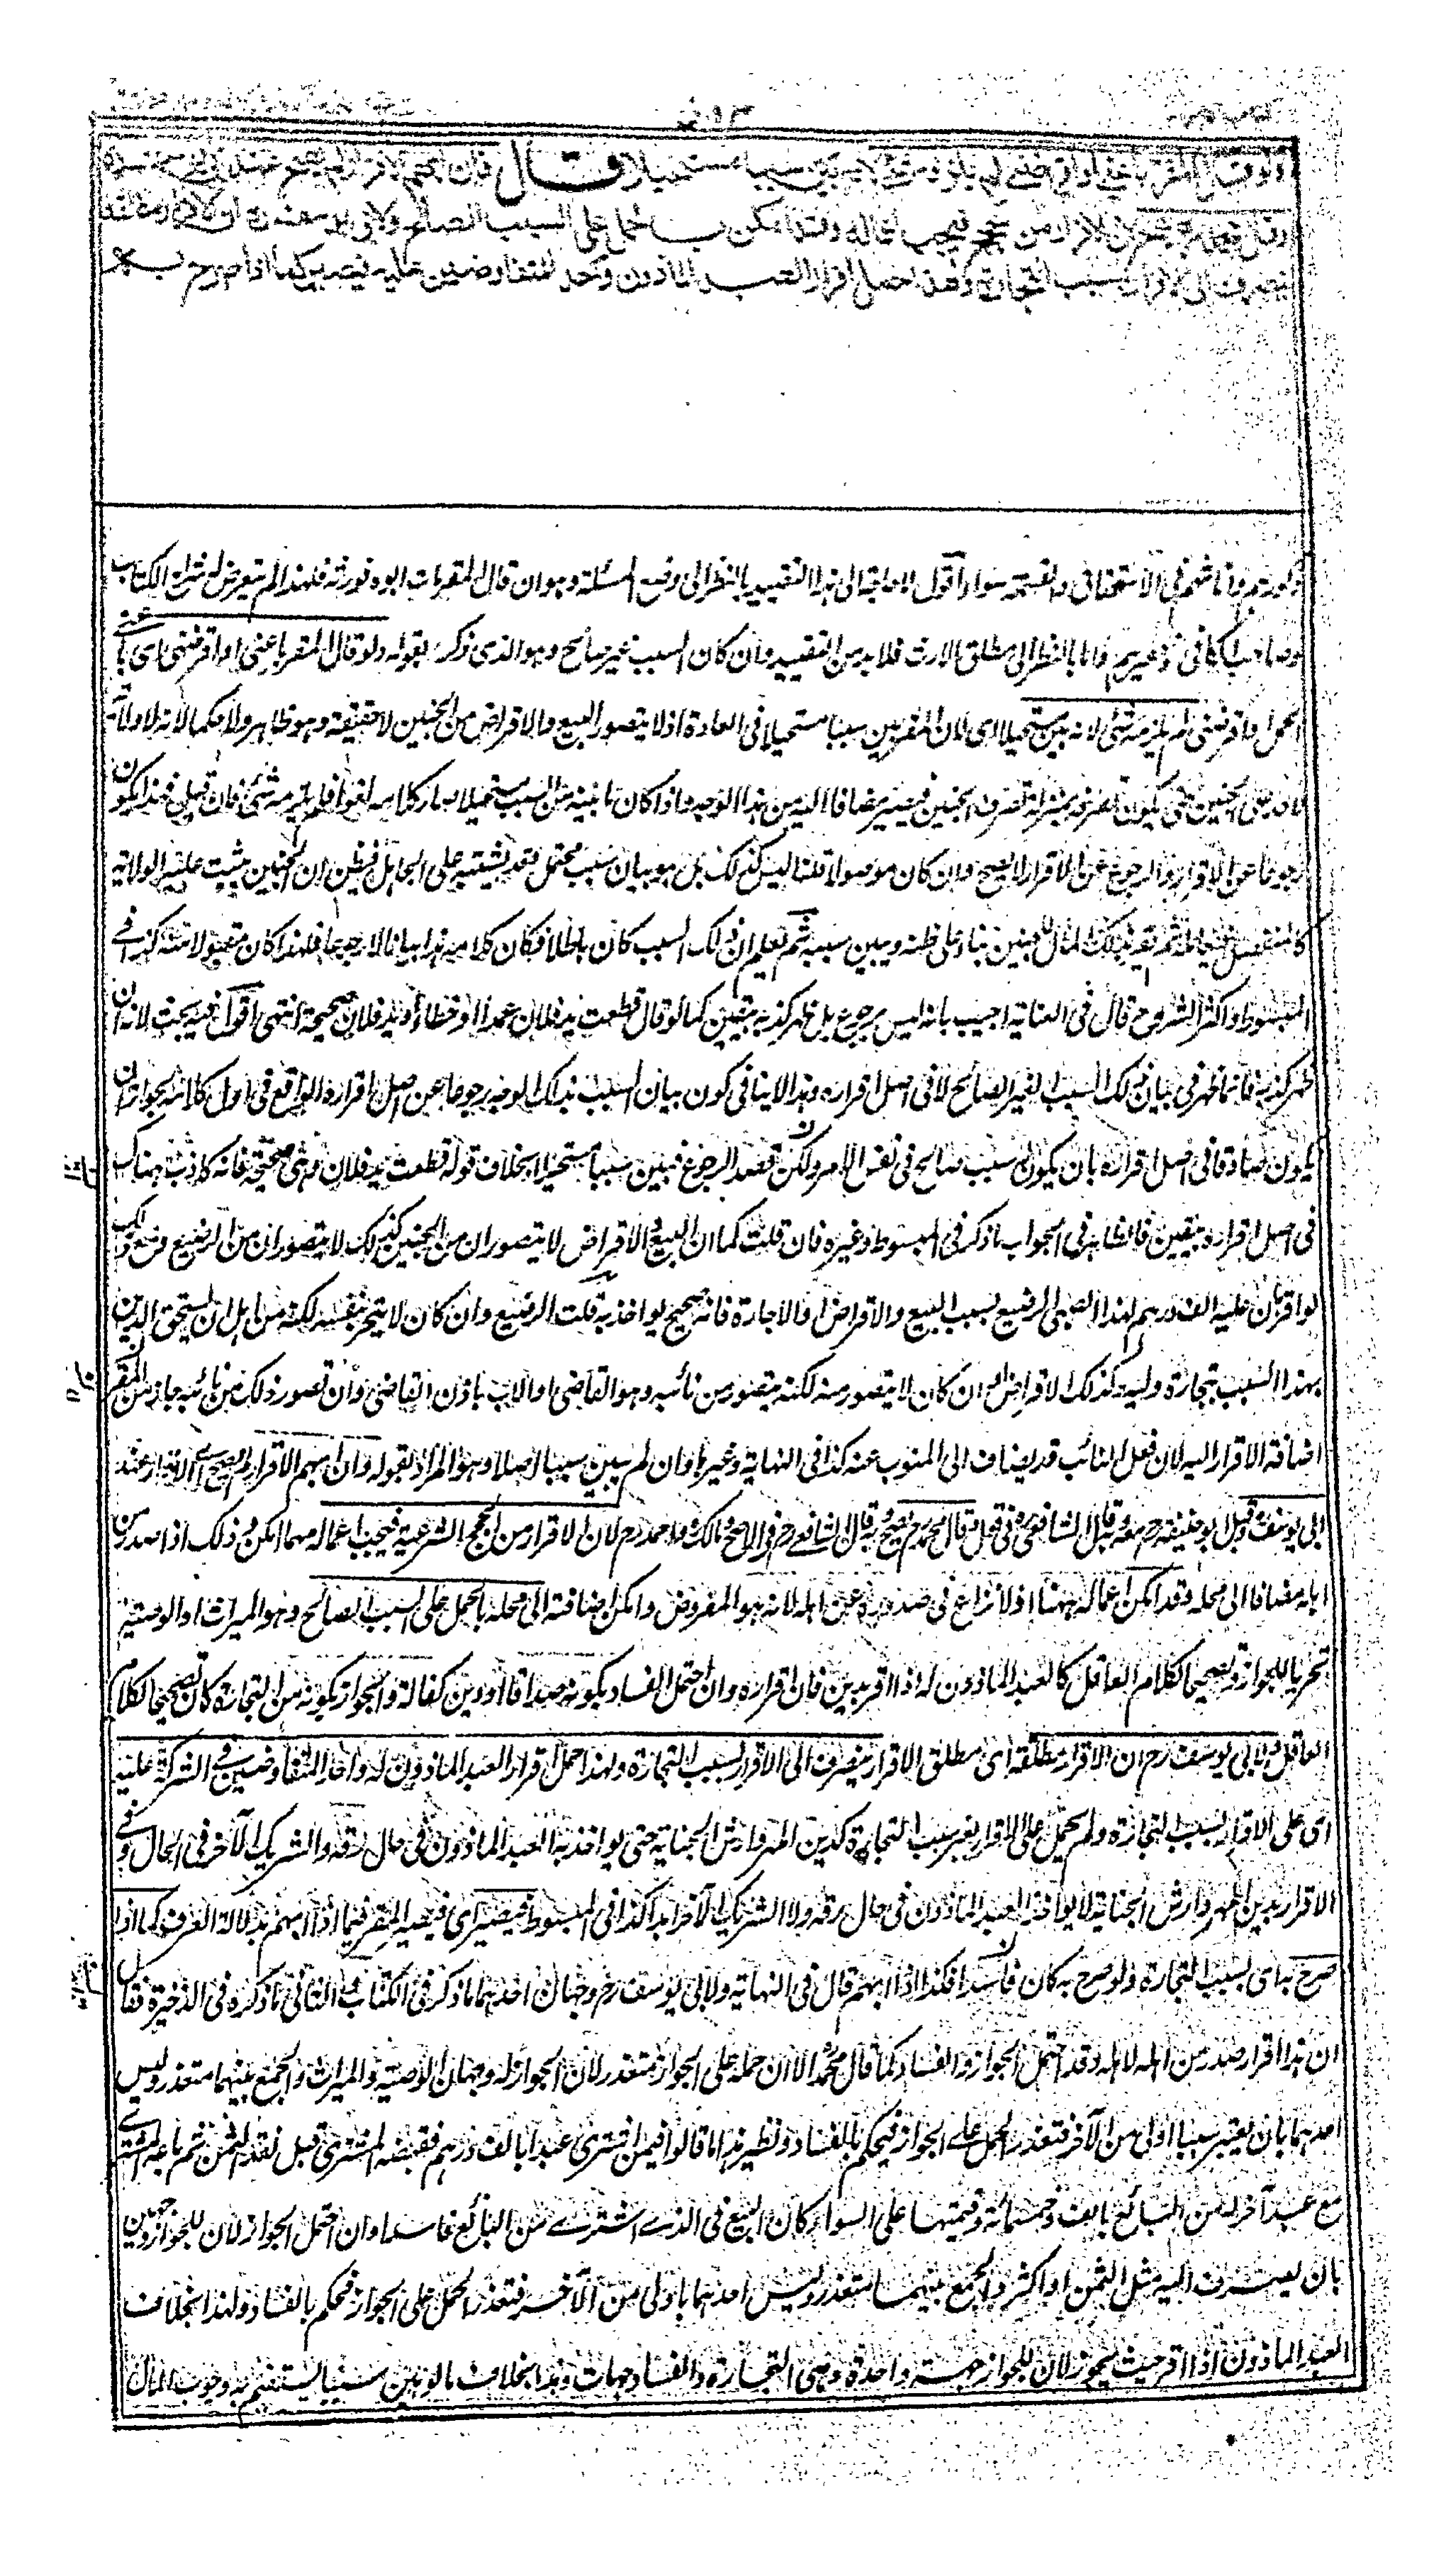 ولو قال المقر به باعني أو أقرضني لم يلزمه شيء لأنه بين سببا مستحيلا قال فإن أبهم الإقرار لم يصح عند أبي يوسف
وقال محمد يصح لأن الإقرار من الحجج فيجب إعماله وقد أمكن بالحمل على السبب الصالح ولأبي يوسف أن الإقرار مطلقه
ينصرف إلى الإقرار بسبب التجارة ولهذا حمل إقرار العبد المأذون وأحد المتفاوضين عليه فيصير كما إذا صرح به
في الاستحقاق والقسمة سواء أقول لا حاجة الى هذا التقييد بالنظر الى وضع المسئلة وهو ان قال المقر مات ابوه فورثه فلهذا لم يتعرض له شراح الكتاب
وصاحب الكافى وغيرهم واما بالنظر الى مطلق الارث فلا بد من التقييد وان كان السبب غير صالح وهو الذى ذكره بقوله ولو قال المقر باعنى او اقرضنى اى
الحمل او اقرضنى لم يلزمه شئ لانه بين مستحيلا اى لان المقر بين سببا مستحيلا فى العادة اذ لا يتصور البيع والاقراض من الجنين لا حقيقة وهو ظاهر ولا حكما لانه لا ولاية
لاحد على الجنين حتى يكون تصرفه بمنزلة تصرف الجنين فيصير مضافا اليه من هذا الوجه واذا كان ما بينه من السبب مستحيلا صار كلامه لغوا فلم يلزمه شئ فان قيل فهذا يكون
رجوعا عن الاقرار والرجوع عن الاقرار لا يصح وان كان موصولا قلنا ليس كذلك بل هو بيان سبب محتمل فقد يشتبه على الجاهل فيظن ان الجنين يثبت عليه الولاية
كالمنفصل فيعامله ثم يقر بذلك المال للجنين بناء على ظنه ويبين سببه ثم يعلم ان ذلك السبب كان باطلا فكان كلامه هذا بيانا لا رجوعا فلهذا كان مقبولا منه كذا فى
المبسوط واكثر الشروح قال فى العناية اجيب بانه ليس برجوع بل ظهر كذبه بيقين كما لو قال قطعت يد فلان عمدا او خطأ ويد فلان صحيحة انتهى اقول فيه بحث لانه ان
ظهر كذبه فانما ظهر فى بيان ذلك السبب الغير الصالح لا فى اصل اقراره وهذا لا ينافى كون بيان السبب بذلك الوجه رجوعا عن اصل اقراره الواقع فى اول كلامه لجواز ان
يكون صادقا فى اصل اقراره بان يكون له سبب صالح فى نفس الامر ولكن قصد الرجوع فبين سببا مستحيلا بخلاف قوله قطعت يد فلان وهى صحيحة فانه كاذب هناك
فى اصل اقراره بيقين فالظاهر فى الجواب ما ذكر فى المبسوط وغيره فان قلت كما ان البيع والاقراض لا يتصوران من الجنين كذلك لا يتصوران من الرضيع ومع ذلك
لو اقر بان عليه الف درهم لهذا الصبى الرضيع بسبب البيع والاقراض او الاجارة فانه صحيح يواخذ به قلت الرضيع وان كان لا يتجر بنفسه لكنه من اهل ان يستحق الدين
بهذا السبب بتجارة وليه وكذلك الاقراض وان كان لا يتصور منه لكنه يتصور من نائبه وهو القاضى او الاب باذن القاضى وان تصور ذلك من نائبه جاز من المقر
اضافة الاقرار اليه لان فعل النائب قد يضاف الى المنوب عنه كذا فى النهاية وغيرها وان لم يبين سببا اصلا وهو المراد بقوله وان ابهم الاقرار لم يصح اى الاقرار عند
ابى يوسف وقيل ابو حنيفة رح معه وقال محمد رح يصح وبه قال الشافعى رح فى الاصح ومالك واحمد رح لان الاقرار من الحجج الشرعية فيجب اعماله مهما امكن وذلك اذا صدر من
اهله مضافا الى محله وقد امكن اعماله ههنا اذ لا نزاع فى صدوره عن اهله لانه هو المفروض وامكن اضافته الى محله بالحمل على السبب الصالح وهو الميراث او الوصية
تحريا للجواز وتصحيحا لكلام العاقل كالعبد الماذون له اذا اقر بدين فان اقراره وان احتمل الفساد بكونه صداقا او دين كفالة والجواز بكونه من التجارة كان تصحيحا لكلام
العاقل ولابى يوسف رح ان الاقرار مطلقه اى مطلق الاقرار ينصرف الى الاقرار بسبب التجارة ولهذا حمل اقرار العبد الماذون له واحد المتفاوضين فى الشركة عليه
اى على الاقرار بسبب التجارة ولم يحمل على الاقرار بغير سبب التجارة كدين المهر وارش الجناية حتى يواخذ به العبد الماذون فى حال رقه والشريك الآخر فى الحال وفى
الاقرار بدين المهر وارش الجناية لا يواخذ العبد الماذون فى حال رقه ولا الشريك الآخر ابدا كذا فى المبسوط فيصير اى فيصير المقر فيما اذا ابهم بدلالة العرف كما اذا
صرح به اى بسبب التجارة ولو صرح به كان فاسدا فكذا اذا ابهم قال فى النهاية ولابى يوسف رح وجهان احدهما ما ذكر فى الكتاب والثانى ما ذكره فى الذخيرة فقال
ان هذا اقرار صدر من اهله لاهله وقد احتمل الجواز والفساد كما قال محمد الا ان حمله على الجواز متعذر لان الجواز له وجهان الوصية والميراث والجمع بينهما متعذر وليس
احدهما بان يعتبر سببا اولى من الآخر فتعذر الحمل على الجواز فيحكم بالفساد ونظير هذا ما قالوا فيمن اشترى عبدا بالف درهم فقبضه المشترى قبل نقد الثمن ثم باعه المشترى
مع عبد آخر له من البائع بالف وخمسمائة وقيمتهما على السواء كان البيع فى الذى اشترى من البائع فاسدا وان احتمل الجواز لان للجواز وجهين
بان يصرف اليه مثل الثمن او اكثر والجمع بينهما متعذر وليس احدهما باولى من الآخر فتعذر الحمل على الجواز فحكم بالفساد ولهذا بخلاف
العبد الماذون اذا اقر حيث يجوز لان للجواز جهة واحدة وهى التجارة وللفساد جهات وهذا بخلاف ما لو بين سببا يستقيم به وجوب المال